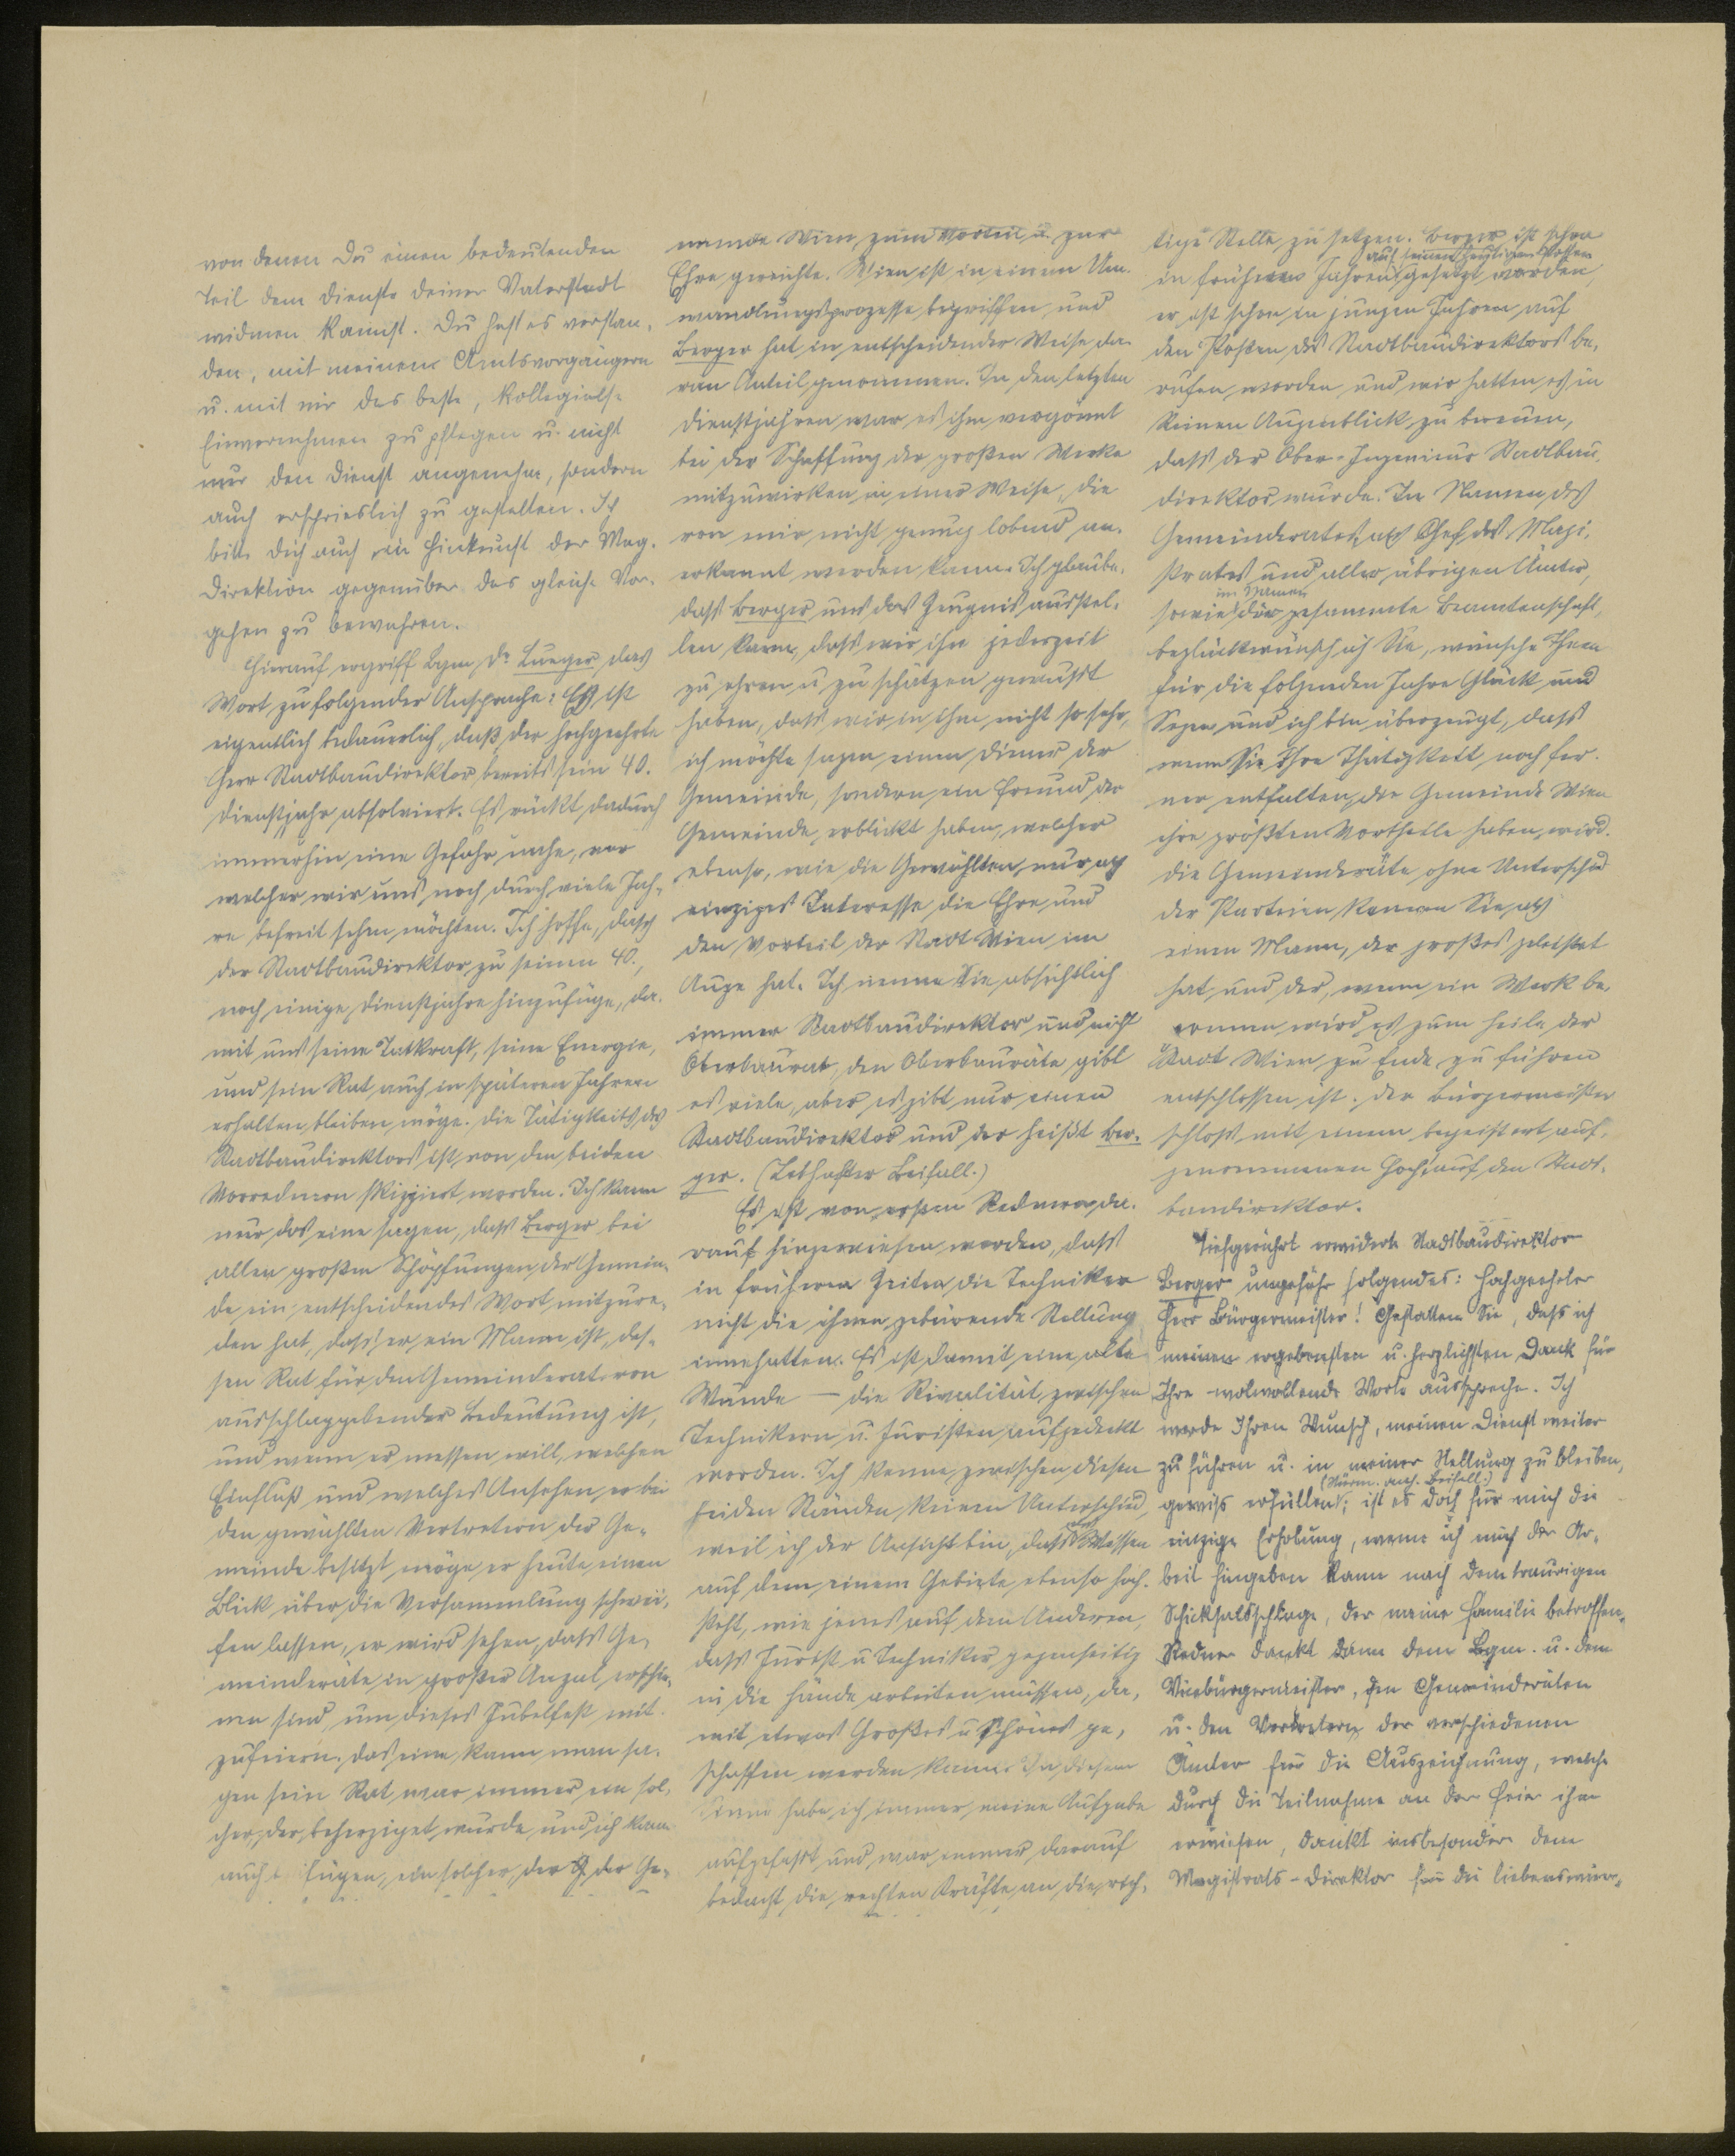 von denen Du einen bedeutenden
Teil dem Dienste deiner Vaterstadt
widmen kannst. Du hast es verstan-
den, mit meinem Amtsvorgängern
u. mit mir das beste, kollegialste
Einvernehmen zu pflegen u. nicht
nur den Dienst angenehm, sondern
auch ersprieslich zu gestalten. Ich
bitte Dich auch in Hinkunft der Mag.
Direktion gegenüber das gleiche Vor-
gehen zu bewahren.
Hierauf ergriff Bgm. Dr. Lueger das
Wort zu folgender Ansprache: Es ist
eigentlich bedauerlich, daß der hochgeehrte
Herr Stadtbaudirektor bereits sein 40.
Dienstjahr absolviert. Es rückt dadurch
immerhin eine Gefahr nahe, vor
welcher wir uns noch durch viele Jah-
re befreit sehen möchten. Ich hoffe, dass
der Stadtbaudirektor zu seinen 40.,
noch einige Dienstjahre hinzufüge, da-
mit uns seine Tatkraft, seine Energie,
und sein Rat auch in späteren Jahren
erhalten bleiben möge. Die Tätigkeit des
Stadtbaudirektors ist von den beiden
Vorrednern skizziert worden. Ich kann
nur das eine sagen, dass Berger bei
allen großen Schöpfungen der Gemein-
de ein entscheidendes Wort mitzure-
den hat, dass er ein Mann ist, des-
sen Rat für den Gemeinderat von
ausschlaggebender Bedeutung ist,
und wenn er messen will, welchen
Einfluß und welches Ansehen er bei
den gewählten Vertretern der Ge-
meinde besitzt, möge er heute einen
Blick über die Versammlung schwei-
fen lassen, er wird sehen, dass Ge-
meinderäte in großer Anzal erschie-
nen sind, um dieses Jubelfest mit-
zufeiern. Das eine kann man sa-
gen sein Rat war immer ein sol-
cher, der beherziget wurde, und ich kann
auch fügen, ein solcher, der der Ge-
meinde Wien zum Vorteil u. zur
Ehre gereichte. Wien ist in einem Um-
wandlungsprozesse begriffen und
Berger hat in entscheidender Weise da-
ran Anteil genommen. In den letzten
Dienstjahren war es ihm vergönnt
bei der Schaffung der großen Werke
mitzuwirken in einer Weise, die
von mir nicht genug lobend an-
erkannt werden kann. Ich glaube,
dass Berger uns das Zeugnis ausstel-
len kann, dass wir ihn jederzeit
zu ehren u. zu schätzen gewusst
haben, dass wir in ihm nicht so sehr,
ich möchte sagen einen Diener der
Gemeinde, sondern ein Freund der
Gemeinde erblickt haben, welcher
ebenso, wie die Gewählten nur als
einziges Interesse die Ehre und
den Vorteil der Stadt Wien im
Auge hat. Ich nenne Sie absichtlich
immer Stadtbaudirektor und nicht
Oberbaurat, den Oberbauräte gibt
es viele, aber es gibt nur einen
Stadtbaudirektor und der heißt Ber-
ger. (Lebhafter Beifall.)
Es ist von ersten Redner da-
rauf hingewiesen worden, dass
in früheren Zeiten die Techniker
nicht die ihnen gebürende Stellung
innehatten. Es ist damit eine alte
Wunde — die Rivalität zwischen
Technikern u. Juristen aufgedeckt
worden. Ich kenne zwischen diesen
beiden Ständen keinen Unterschied,
weil ich der Ansicht bin, dass das Wissen
auf dem einem Gebiete ebenso hoch-
steht, wie jenes auf dem Anderen,
dass Jurist u. Techniker gegenseitig
in die Hände arbeiten müssen, da-
mit etwas Großes u. Schönes ge-
schaffen werden kann. In diesem
Sinne habe ich immer meine Aufgabe
aufgefasst und war immer darauf
bedacht die rechten Kräfte an die rich-
tige Stelle zu setzen. Berger ist schon
in früheren Jahren auf seinen heutigen Posten gesetzt worden,
er ist schon in jungen Jahren auf
den Posten des Stadtbaudirektors be-
rufen worden und wir hatten es in
keinen Augenblick zu bereuen,
dass der Ober-Ingenieur Stadtbau-
direktor wurde. Im Namen des
Gemeinderates, als Chef des Magi-
strates und aller übrigen Ämter,
sowie im Namen der gesammte Beamtenschaft,
beglückwünsch ich Sie, wünsche Ihnen
für die folgenden Jahre Glück und
Segen und ich bin überzeugt, dass
wenn Sie Ihre Thätigkeit noch fer-
ner entfalten, die Gemeinde Wien
ihre größten Vortheile haben wird.
Die Gemeinderäte ohne Unterschied
der Parteien kennen Sie als
einen Mann, der großes geleistet
hat und der, wenn ein Werk be-
gonnen wird es zum Heile der
Stadt Wien zu Ende zu führen
entschlossen ist. Der Bürgermeister
schloss mit einem begeistert auf-
genommenen Hoch auf den Stadt-
baudirektor.
Tiefgerührt erwiderte Stadtbaudirektor
Berger ungefähr folgendes: Hochgeehrter
Herr Bürgermeister! Gestatten Sie, dass ich
meinen ergebensten u. herzlichsten Dank für
Ihre wolwollende Worte ausspreche. Ich
werde Ihren Wunsch, meinen Dienst weiter
zu führen u. in meiner Stellung zu bleiben,
gewiss erfüllen (Stürm. anh. Beifall.); ist es doch für mich die
einzige Erholung, wenn ich mich der Ar-
beit hingeben kann nach dem traurigen
Schicksalsschlage, der meine Familie betroffen.
Redner dankt dann dem Bgm. u. dem
Vicebürgermeister, den Gemeinderäten
u. den Vertretern der verschiedenen
Ämter für die Auszeichnung, welche
durch die Teilnahme an der Feier ihm
erwiesen, dankt insbesondere dem
Magistrats-Direktor für die liebenswür-